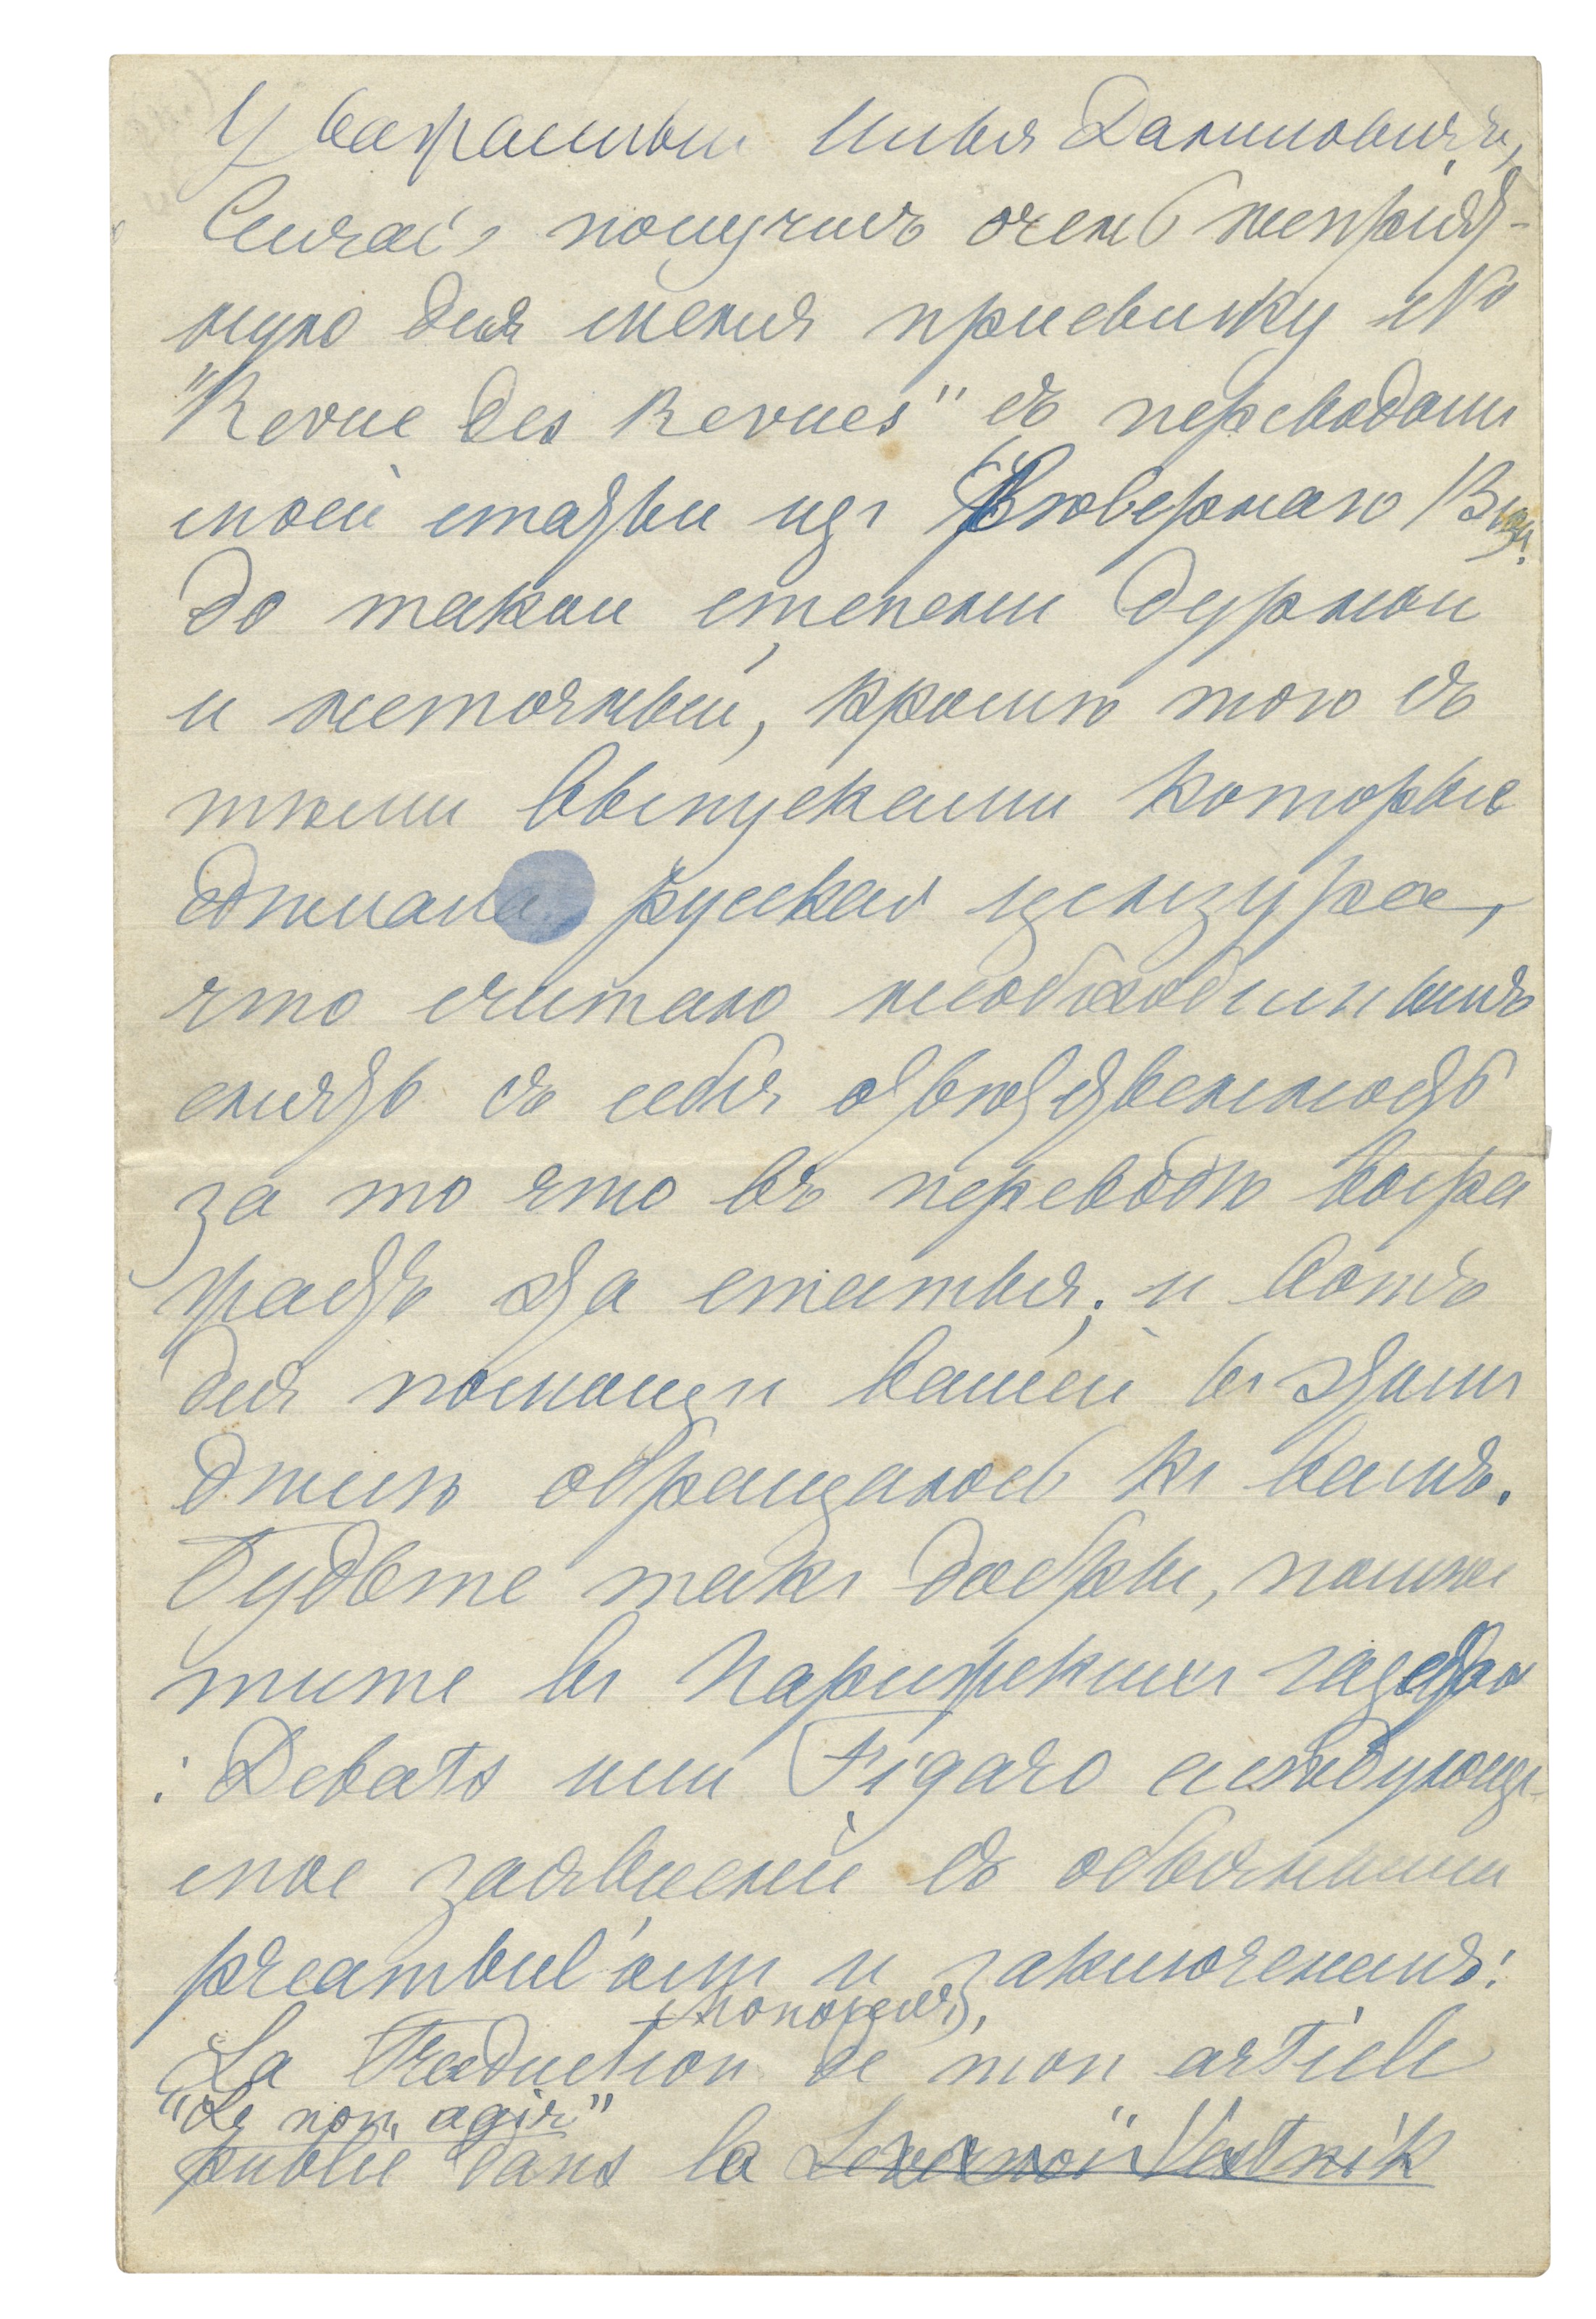 Уважаемый Илья Даниловичъ,
Сейчасъ получилъ очень непріят-
ную для меня присылку №
"Revue des Revues" съ переводомъ
моей статьи изъ Сѣвернаго Вѣст.
до такой степени дурной
и неточный, кромѣ того съ
тѣми выпусками которые
сдѣлала русская цензура,
что считаю необходимымъ
снять съ себя отвѣтственность
за то что въ переводѣ выра
жаетъ эта статья; и вотъ
для помощи вашей въ этомъ
дѣлѣ обращаюсь къ вамъ.
Будьте такъ добры, помѣс
тите въ Парижскихъ газетахъ
: Debats или Figaro слѣдующе-
мое заявленіе съ обычными
préambul'омъ и заключеніемъ:
La traduction de mon article
"Le non agir"
publié dans la Severnoï Vestnik